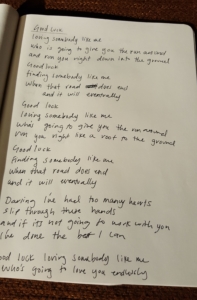 Good luck
loving somebody like me
who is going to give you the run around
and run you right down into the ground
Good luck
finding somebody like me
When that road does end
and it will eventually
Good luck
loving somebody like me
who's going to give you the run around
run you right like a root to the ground
Good luck
finding somebody like me
When that road does end
and it will eventually
Darling I've had too many hearts
slip through these hands
and if its not going to work with you
I've done the best I can
ood luck loving somebody like me
who's going to love you endlessly